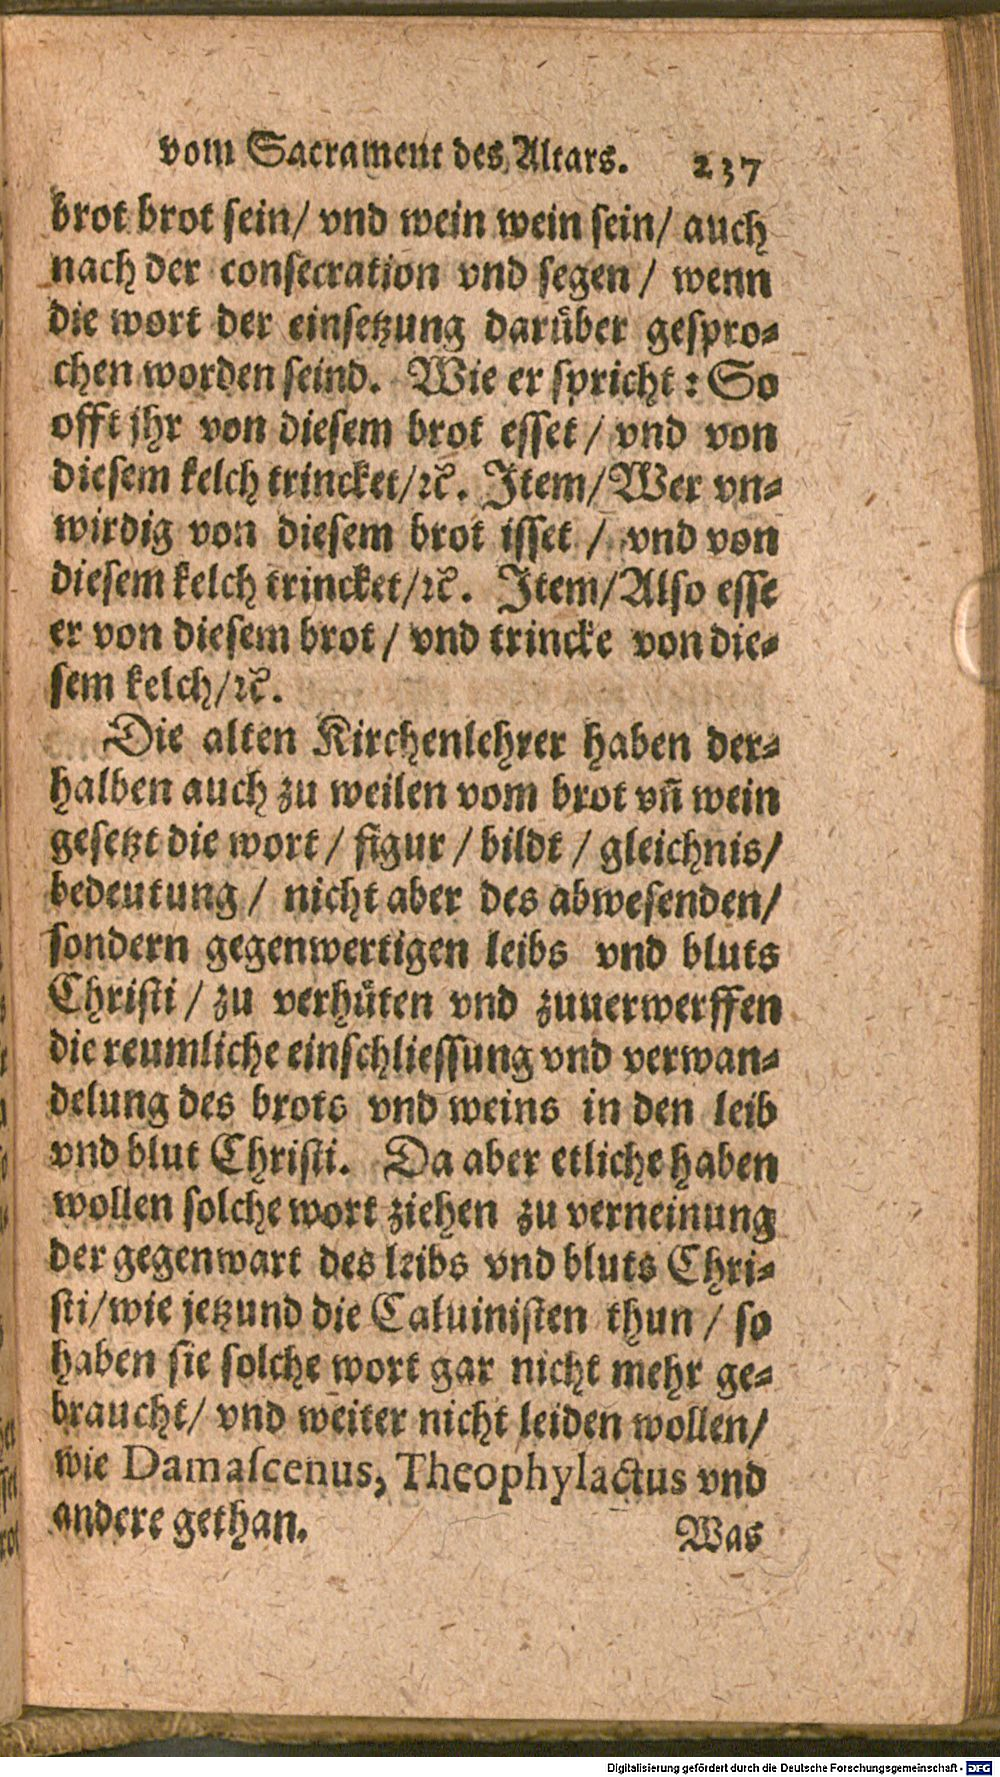 vom Sacrament des Altars. 237
brot brot sein/ vnd wein wein sein/ auch
nach der consecration vnd segen / wenn
die wort der einsetzung darüber gespro-
chen worden seind. Wie er spricht: So
offt jhr von diesem brot esset / vnd von
diesem kelch trincket/ꝛc. Item/Wer vn-
wirdig von diesem brot isset / vnd von
diesem kelch trincket/ꝛc. Item/Also esse
er von diesem brot / vnd trincke von die-
sem kelch/ꝛc.
Die alten Kirchenlehrer haben der-
halben auch zu weilen vom brot vn̄ wein
gesetzt die wort / figur / bildt / gleichnis/
bedeutung / nicht aber des abwesenden/
sondern gegenwertigen leibs vnd bluts
Christi / zu verhüten vnd zuuerwerffen
die reumliche einschliessung vnd verwan-
delung des brots vnd weins in den leib
vnd blut Christi. Da aber etliche haben
wollen solche wort ziehen zu verneinung
der gegenwart des leibs vnd bluts Chri-
sti/wie jetzund die Caluinisten thun / so
haben sie solche wort gar nicht mehr ge-
braucht/ vnd weiter nicht leiden wollen/
wie Damascenus, Theophylactus vnd
andere gethan. Was
Digitalisierung gefördert durch die Deutsche Forschungsgemeinschaft - DFG